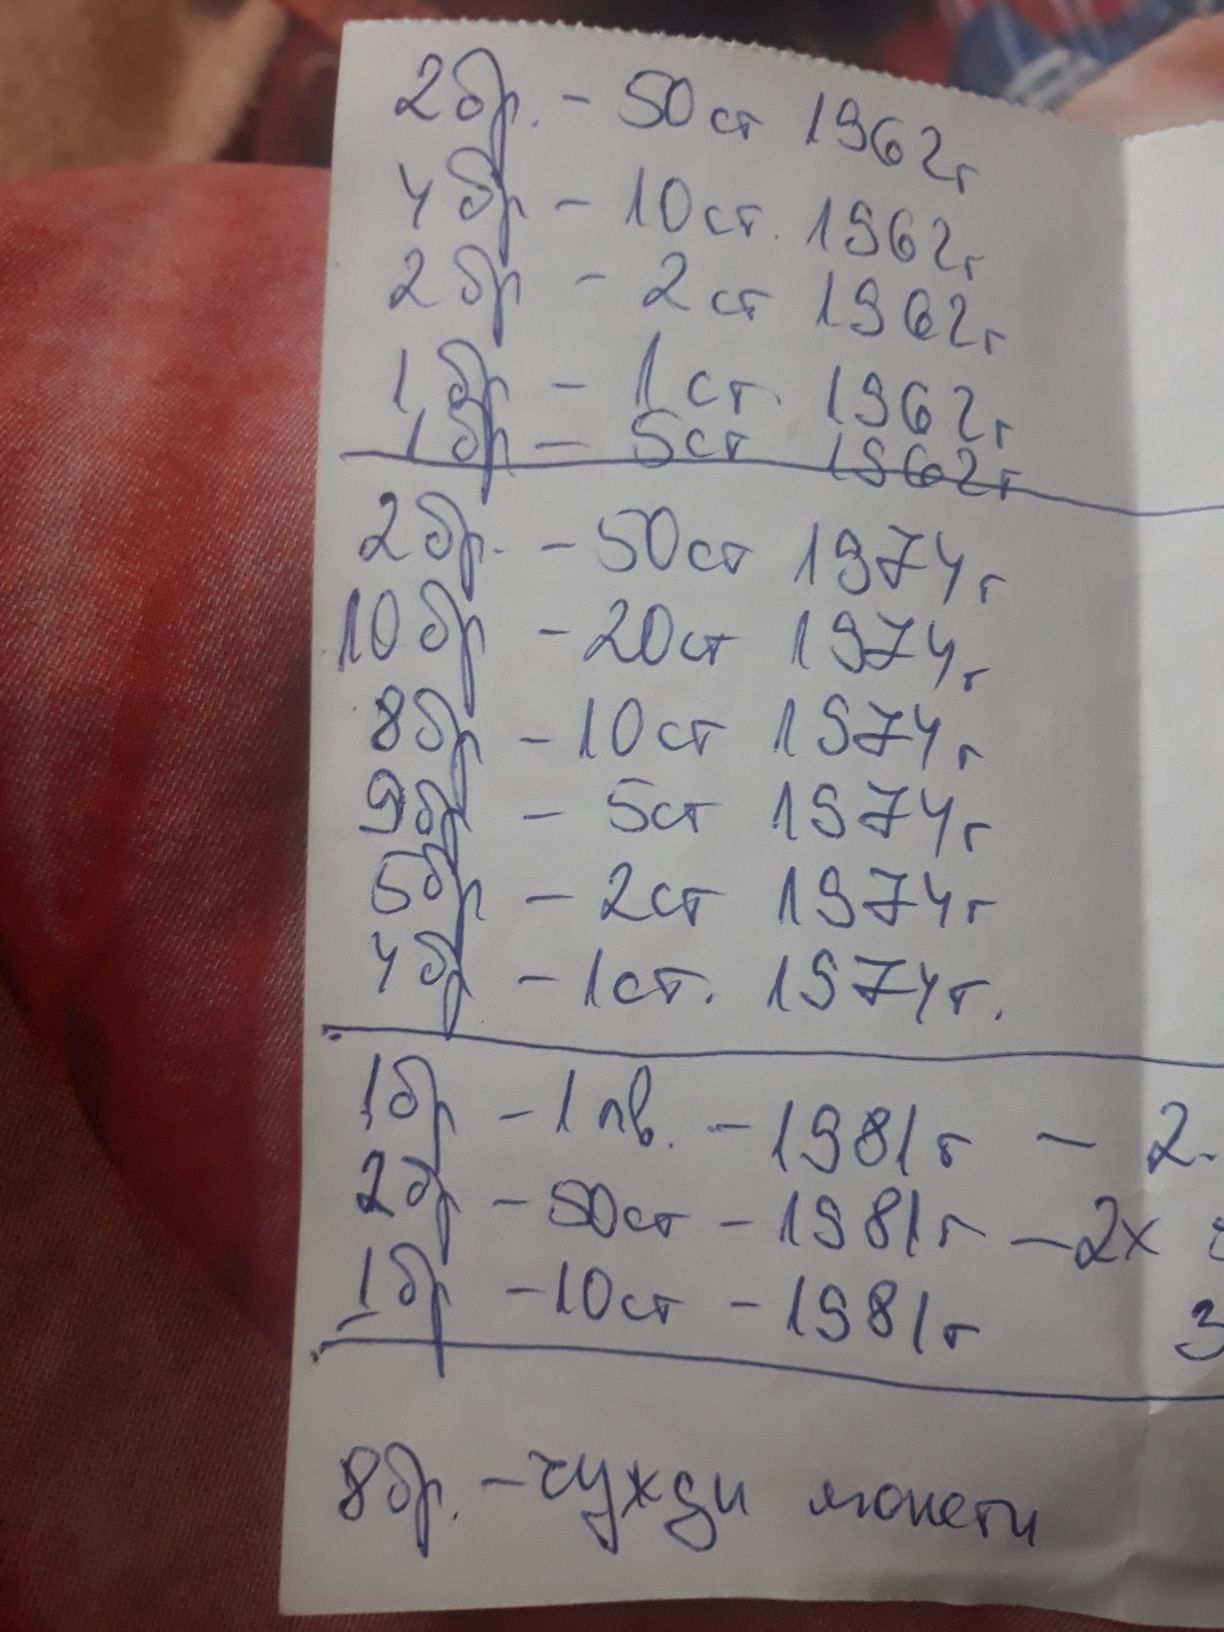 2бр. - 50ст 1962г
4бр - 10ст. 1962г
2бр - 2ст 1962г
1бр - 1ст. 1962г
1бр - 5ст 1962г
2бр. - 50ст 1974г
10бр - 20ст 1974г
8бр - 10ст 1974г
9бр - 5ст 1974г
5бр - 2ст 1974г
4бр - 1ст. 1974г.
1бр - 1лв. - 1981г - 2.
2бр - 50ст - 1981г - 2х
1бр - 10ст - 1981г 3
8бр. - чужди монети